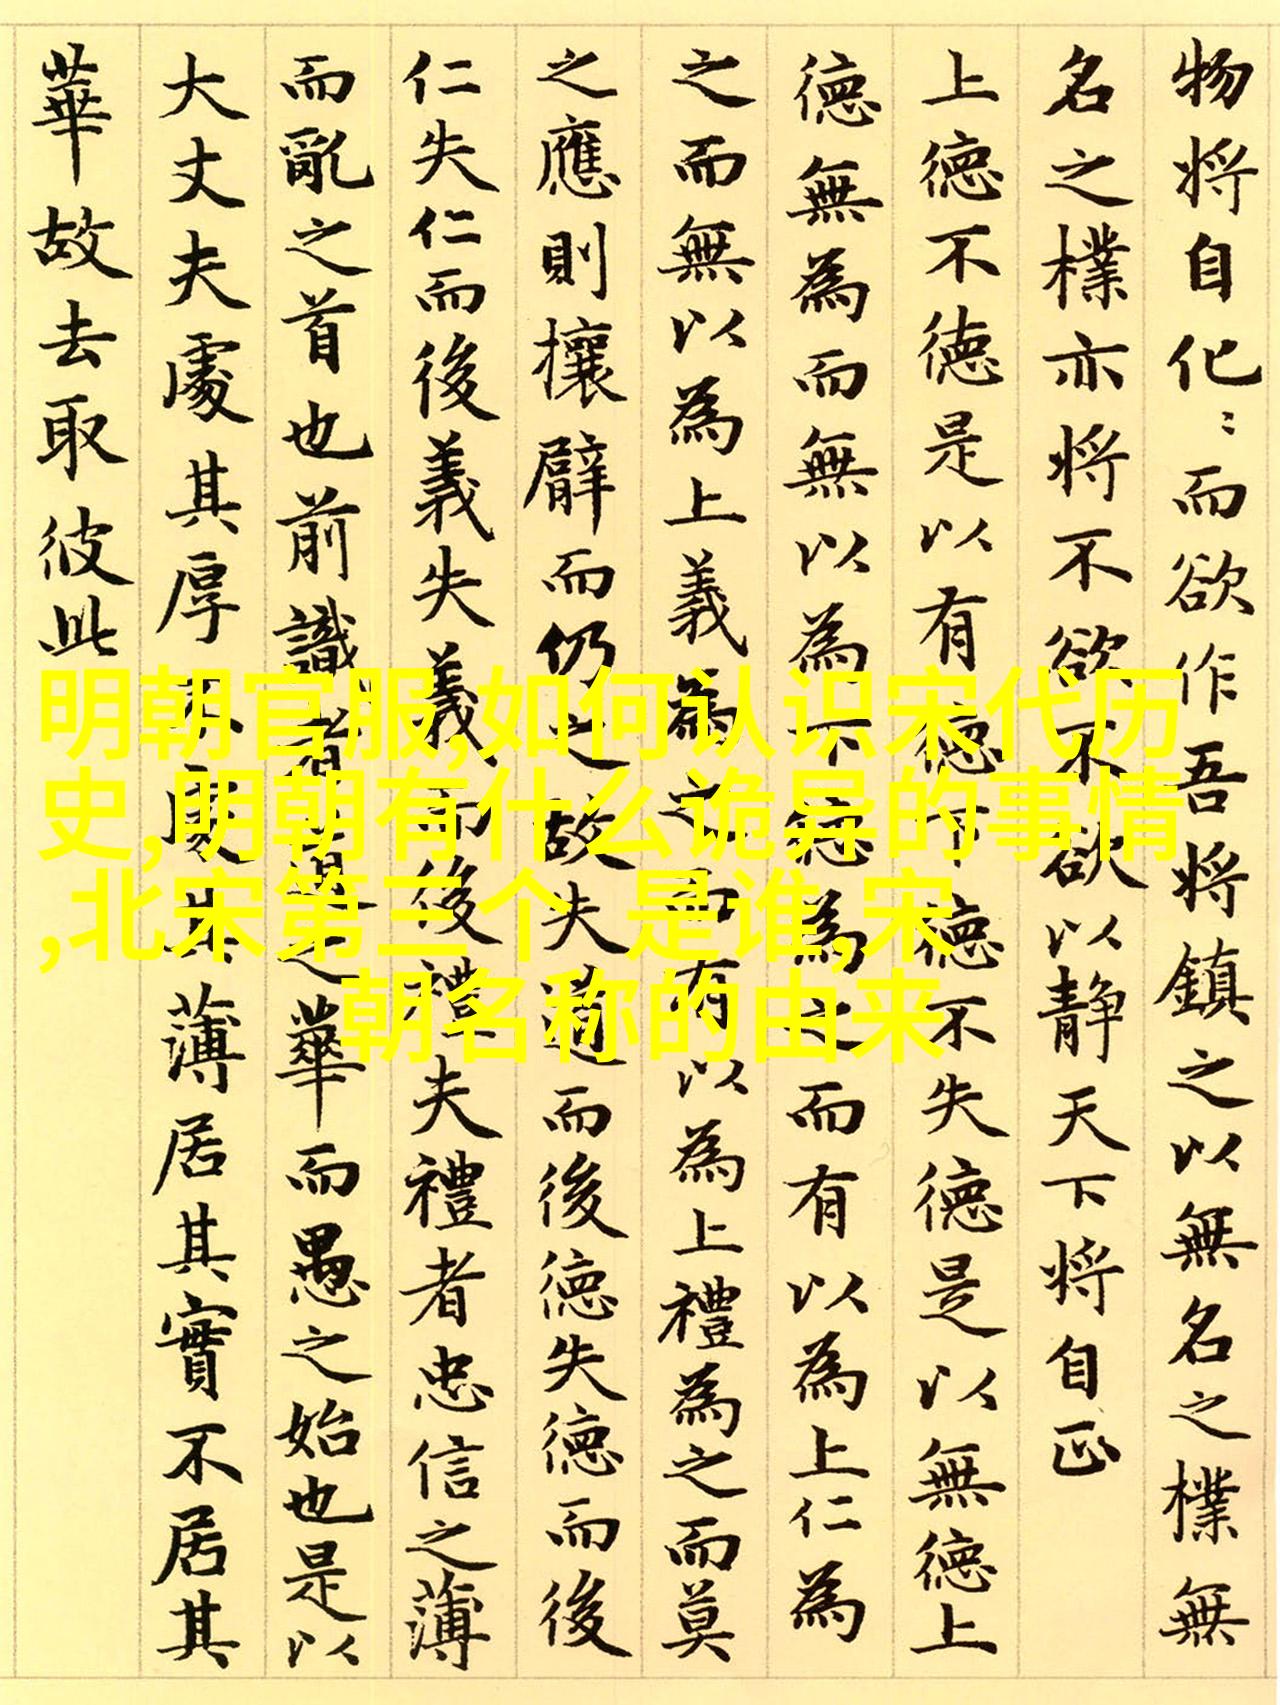 物将自化〻而欲作吾将鎮之以無名之樸無
名之樸亦将不欲不欲以静天下将自正
上德不德是以有德下德不失德是以無德上
德無為而無以為下德為之而有以為上仁為
之而無以為上義為之而有以為上禮為之而莫
之應則攘臂而仍之故失道而後德失德而後
仁失仁而後義失義而後禮夫禮者忠信之薄
而亂之首也前識者道之華而愚之始也是以
大丈夫處其厚不處其薄居其實不居其
華故去取彼此
明朝官服,如何认识宋代历
史,明朝有什么诡异的事情
,北宋第三个 是谁,宋
朝名称的由来